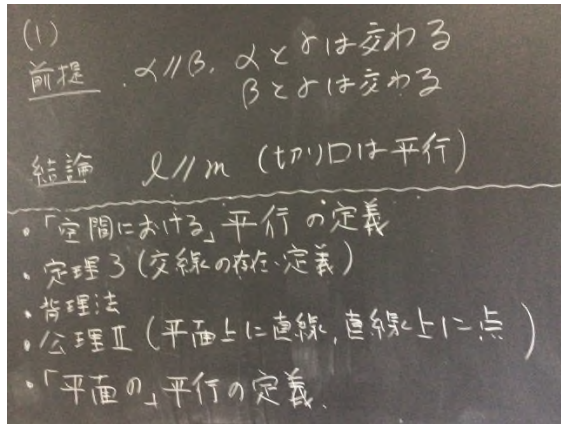 (1)
前提 . α//β. αとγは交わる
βとγは交わる
結論 l//m (切り口は平行)
・「空間における」平行の定義
・定理3(交線の存在・定義)
・背理法
・公理Ⅱ(平面上に直線,直線上に点)
・「平面の」平行の定義.